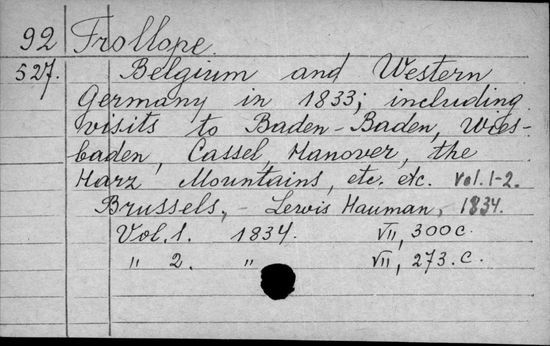 92 Trollope.
527. Belgium and Western
Germany in 1833; including
visits to Baden-Baden, Wies-
baden, Cassel, Hanover, the
Harz Mountains, etc. etc. Vol. 1-2.
Brussels, - Lewis Hauman, 1834.
Vol. 1. 1834. VII, 300 c.
" 2. " VII, 273. c.